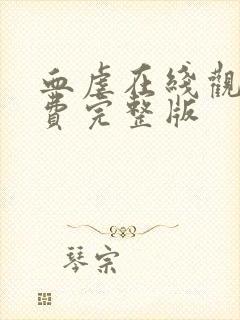 血虐在綫觀
費完整版
琴宗